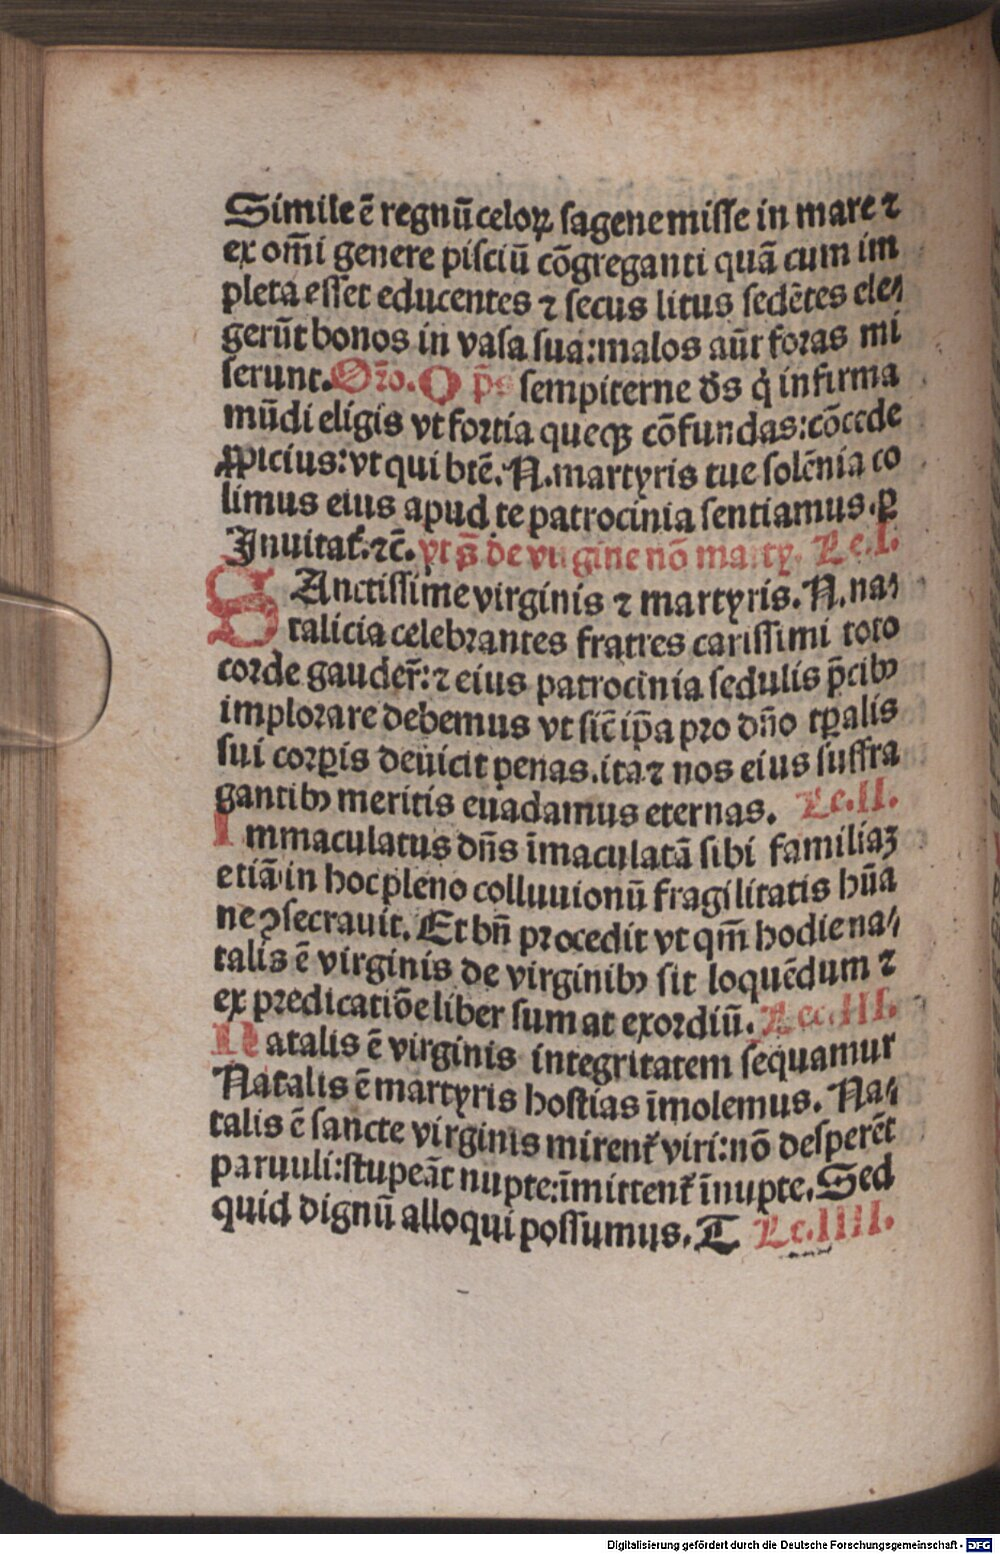 Simile ē regnū celoꝝ sagene misse in mare ⁊
ex om̄i genere pisciū cōgreganti quā cum im
pleta esset educentes ⁊ secus litus sedētes ele⸗
gerūt bonos in vasa sua: malos aūt foras mi
serunt. Oro. O p̄s sempiterne ds̄ q̇ infirma
mūdi eligis vt fortia queqȝ cōfundas: cōcede
ꝓpicius: vt qui btē. N. martyris tue solēnia co
limus eius apud te patrocinia sentiamus. ꝑ
Inuitat. ⁊c̄. vt s̄ de virgine nō marty. Lc. I.
SAnctissime virginis ⁊ martyris. N. na⸗
talicia celebrantes fratres carissimi toto
corde gauder̄: ⁊ eius patrocinia sedulis p̄cibꝰ
implorare debemus vt sic̄ ip̄a pro dn̄o tꝑalis
sui corꝑis deuicit penas. ita ⁊ nos eius suffra
gantibꝰ meritis euadamus eternas. Lc. II.
Immaculatus dn̄s īmaculatā sibi familiaꝫ
etiā in hoc pleno colluuionū fragilitatis hūa
ne ꝯsecrauit. Et bn̄ procedit vt qm̄ hodie na⸗
talis ē virginis de virginibꝰ sit loquēdum ⁊
ex predicatiōe liber sumat exordiū. Lec. III.
Natalis ē virginis integritatem sequamur
Natalis ē martyris hostias īmolemus. Na⸗
talis ē sancte virginis mirent᷑ viri: nō desperēt
paruuli: stupeāt nupte: īmittent᷑ īnupte. Sed
quid dignū alloqui possumus. T Lc. IIII.
Digitalisierung gefördert durch die Deutsche Forschungsgemeinschaft - DFG